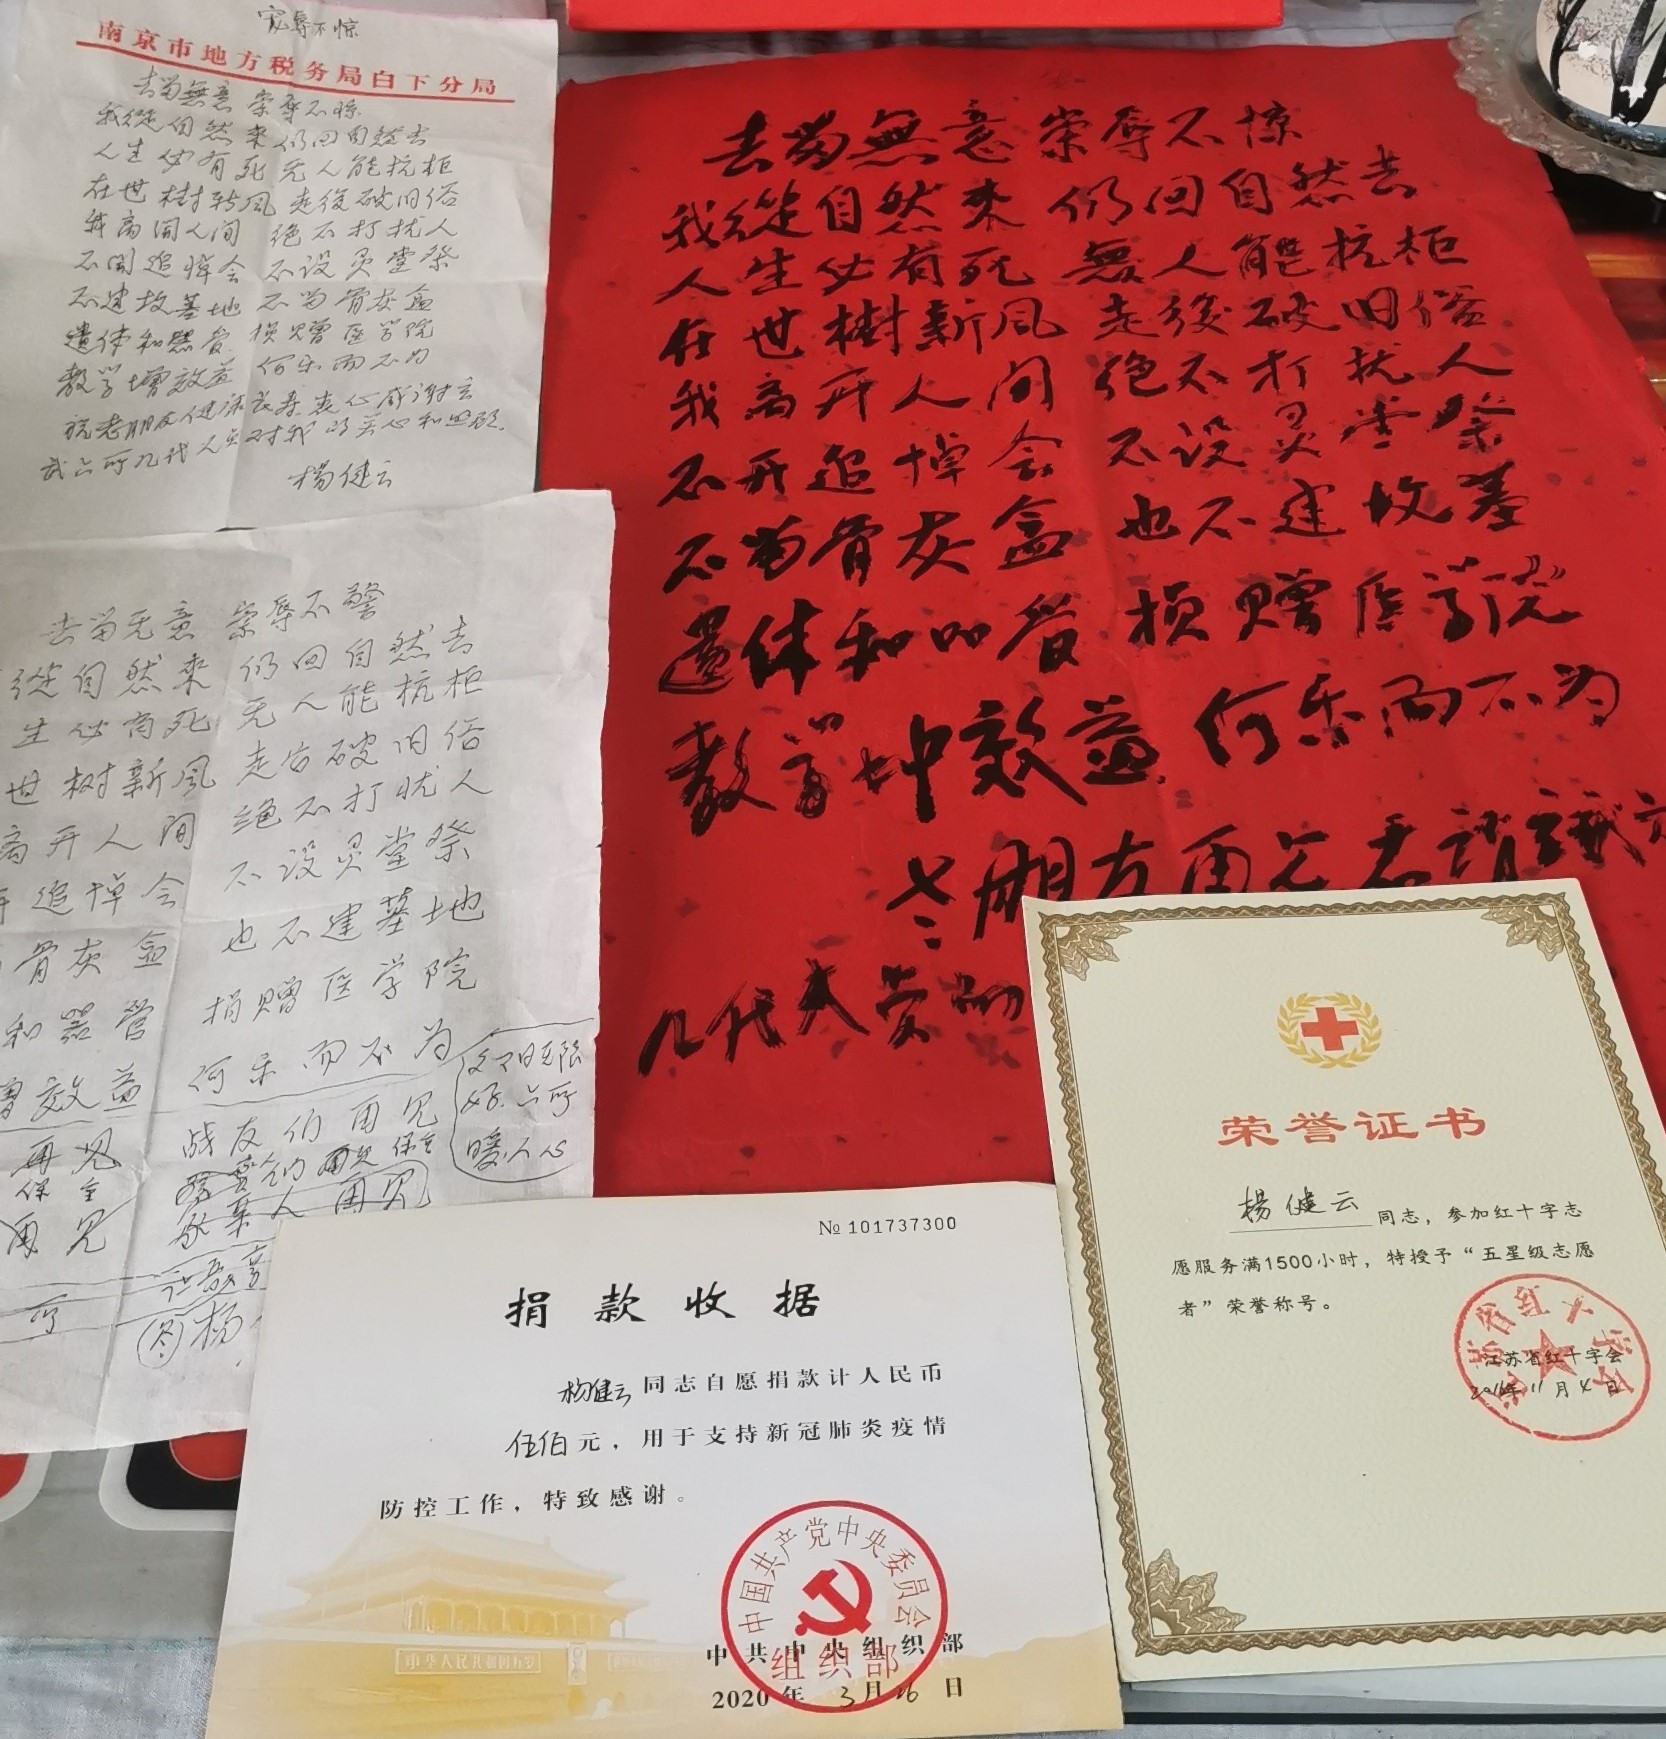 宠辱不惊
南京市地方税务局白下分局
去留無意 荣辱不惊
我從自然来 仍回自然去
人生必有死 无人能抗柜
在世樹新风 走後破旧俗
我离開人间 绝不打扰人
不開追悼会 不设灵堂祭
不建坟墓地 不留骨灰盒
遺体和器官 捐赠医学院
教学增效益 何乐而不为
祝老朋友健康长寿衷心感谢玄
武六所几代人员对我的关心和照顾.
楊健云
去留无意 荣辱不警
從自然来 仍回自然去
生必有死 无人能杭柜
世树新风 走后破旧俗
离开人间 绝不打忧人
开追悼会 不设灵堂祭
骨灰盒 也不建墓地
和器管 捐赠医学院
增效益 何乐而不为
再见 战友们再见
保重
再见 亲人再见
夕阳无限
好六所
暖人心
所
杨
去留無意 荣辱不惊
我從自然来 仍回自然去
人生必有死 無人能抗柜
在世樹新风 走後破旧俗
我离开人间 绝不打扰人
不开追悼会 不设灵堂祭
不留骨灰盒 也不建坟墓
遗体和品管 捐赠医学院
教学增效益 何乐而不为
老朋友再见
几代
№101737300
捐款收据
杨健云同志自愿捐款计人民币
伍佰元，用于支持新冠肺炎疫情
防控工作，特致感谢。
中国共产党中央委员会
组织部
中共中央组织部
2020年3月26日
中华人民共和国万岁
荣誉证书
楊健云同志，参加红十字志
愿服务满1500小时，特授予“五星级志愿
者”荣誉称号。
江苏省红十字会
江苏省红十字会
2016年11月4日